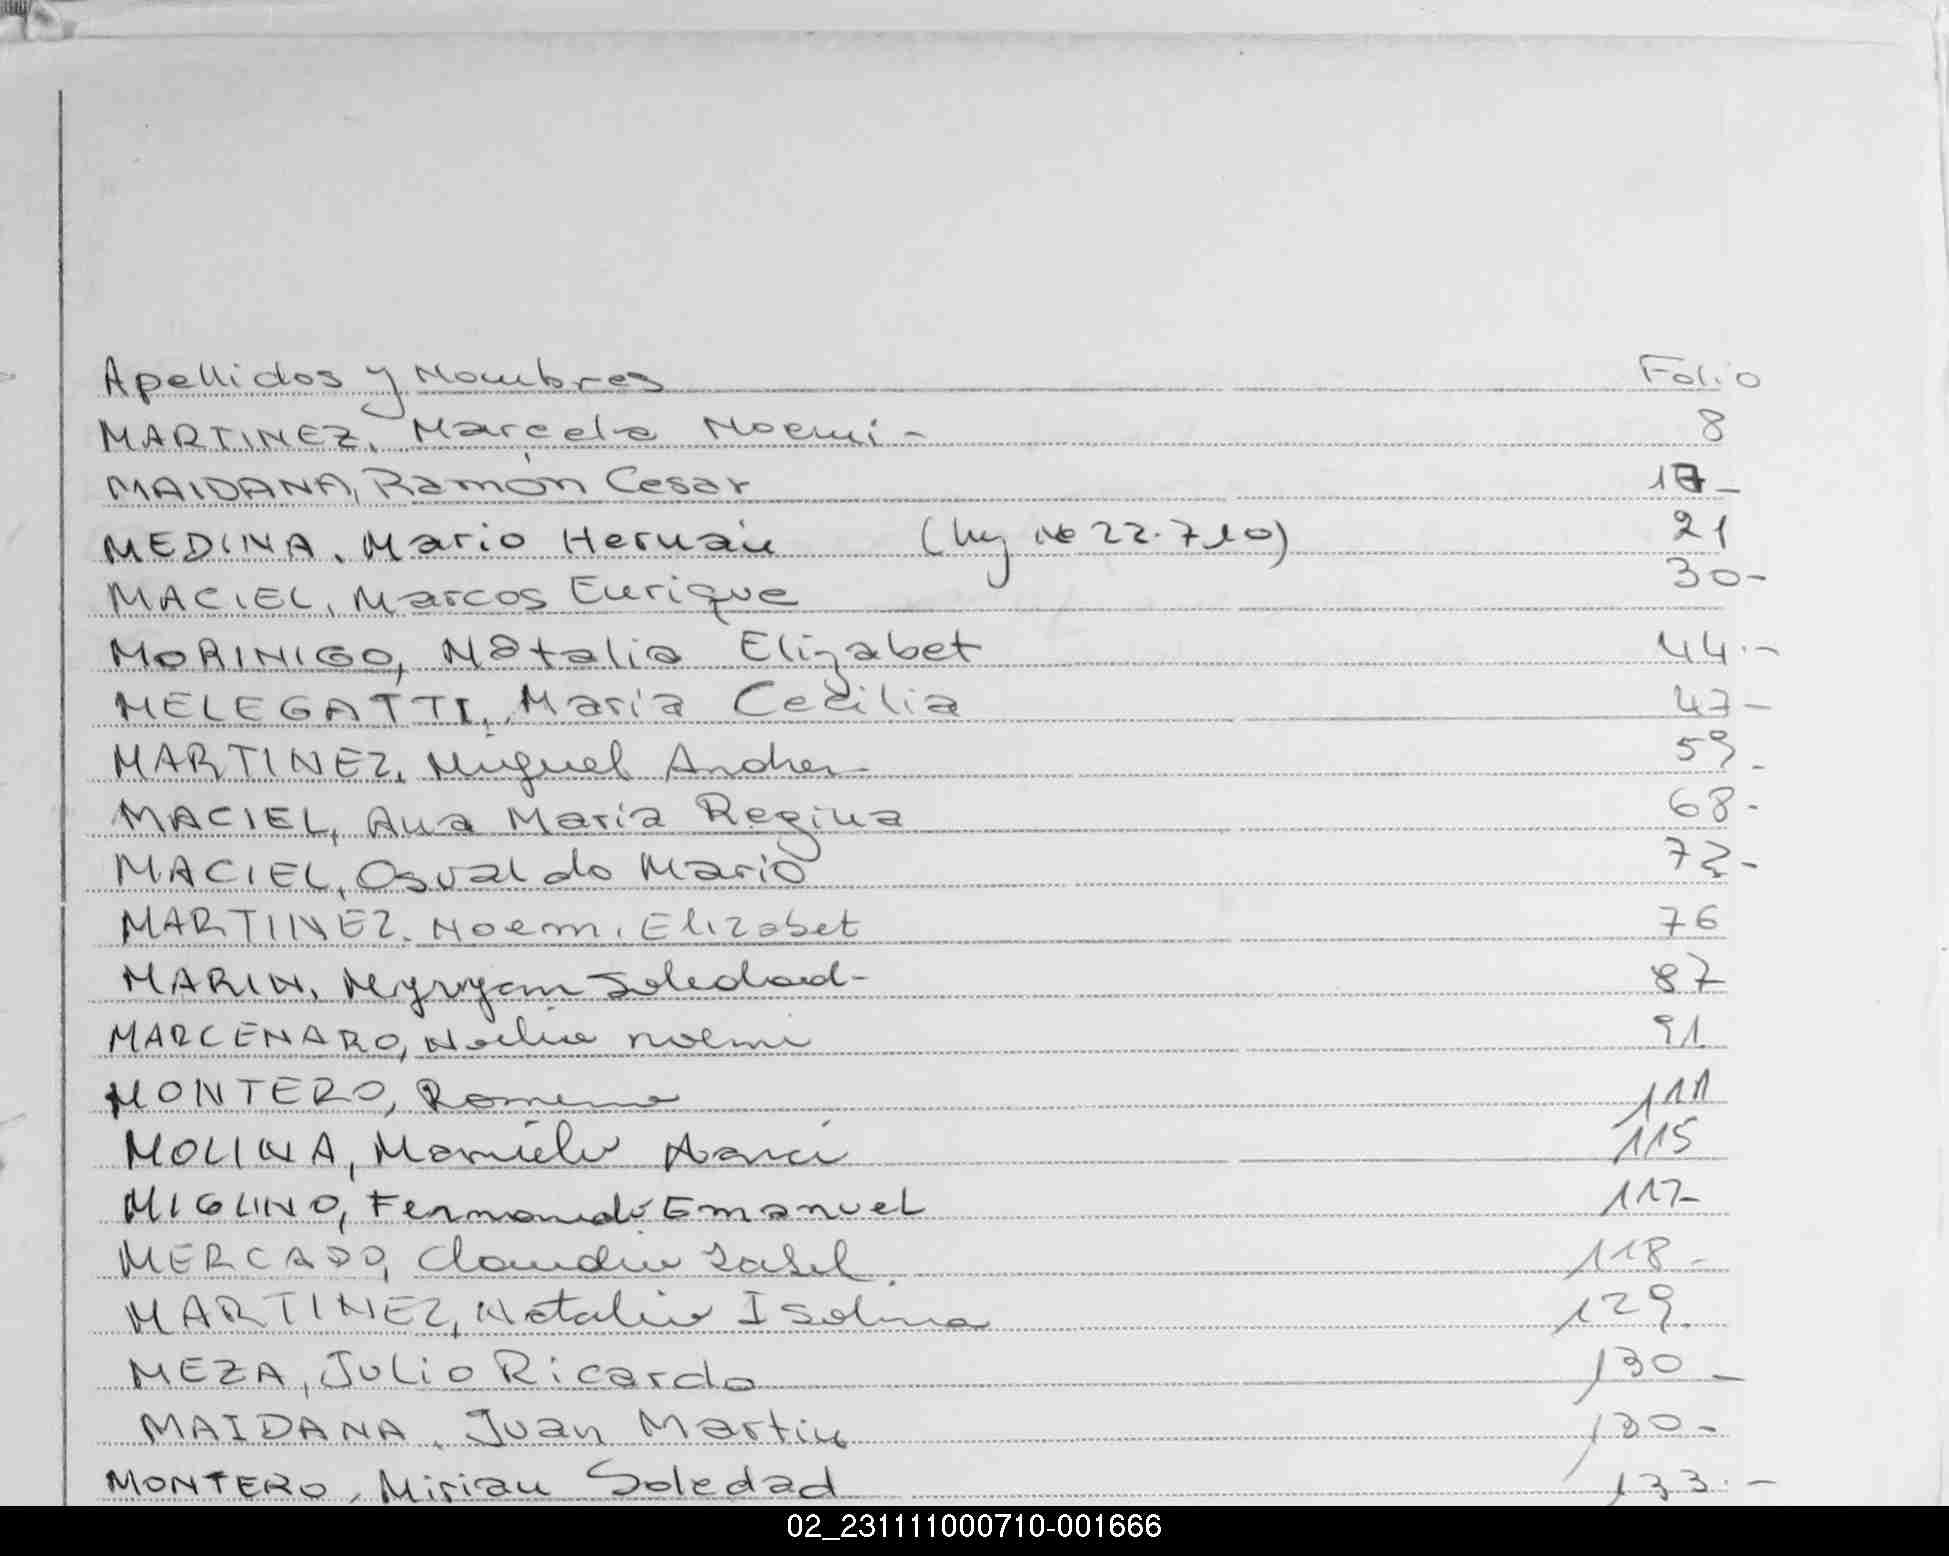 Apellidos y Nombres Folio
MARTINEZ, Marcela Noemi - 8
MAIDANA, Ramón Cesar 17-
MEDINA, Mario Hernán (ley No 22.710) 21
MACIEL, Marcos Enrique 30-
MORINIGO, Natalia Elizabet 44.-
MELEGATTI, Maria Cecilia 47-
MARTINEZ, Miguel Andres 59-
MACIEL, Ana Maria Regina 68-
MACIEL, Osvaldo Mario 72-
MARTINEZ. Noemi Elizabet 76
MARIN, Myryam Soledad- 87
MARCENARO, Noelia Noemi 91
MONTERO, Romina 111
MOLINA, Mariela 115
MIGLINO, Fernando Emanuel 117-
MERCADO, Claudia Isabel. 118-
MARTINEZ, Natalia Isolina 129.
MEZA, Julio Ricardo 130-
MAIDANA, Juan Martin 130-
MONTERO, Mirian Soledad 133.-
02_231111000710-001666